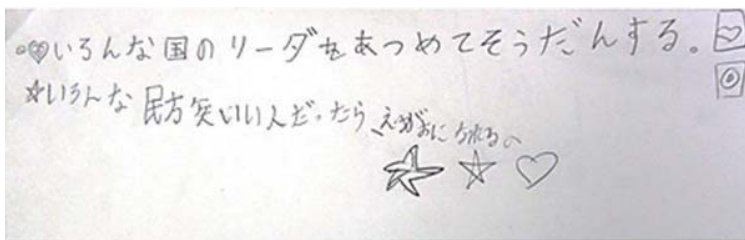 ・♡いろんな国のリーダをあつめてそうだんする。
☆いろんな民方矢いい人だったら、えがおになれるの